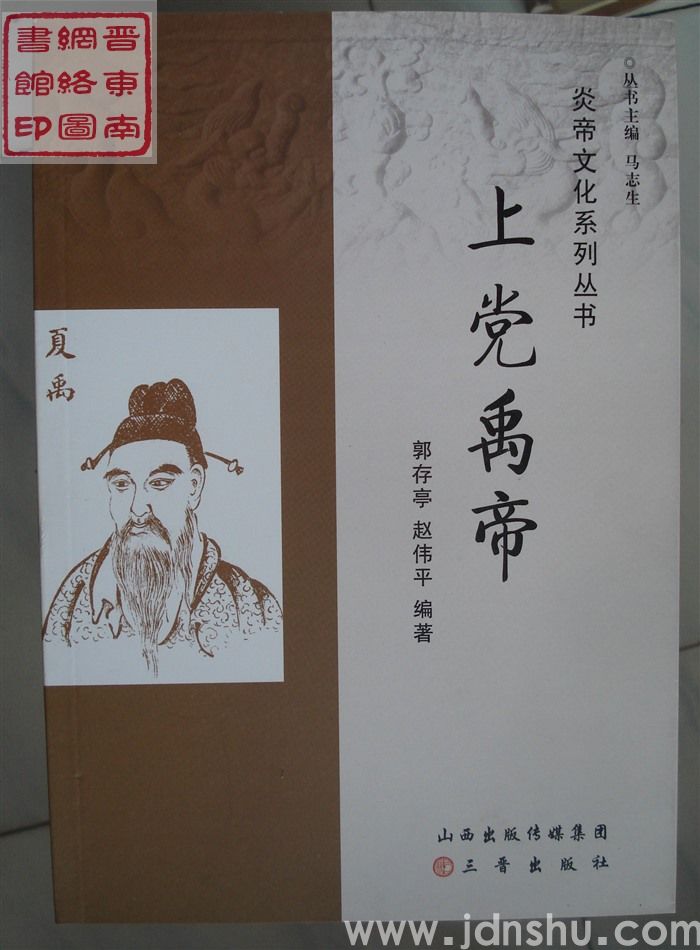 晋東南
網絡圖
書館印
◎丛书主编 马志生
炎帝文化系列丛书
上党禹帝
郭存亭 赵伟平 编著
夏禹
山西出版传媒集团
三晋出版社
www.jdnshu.com